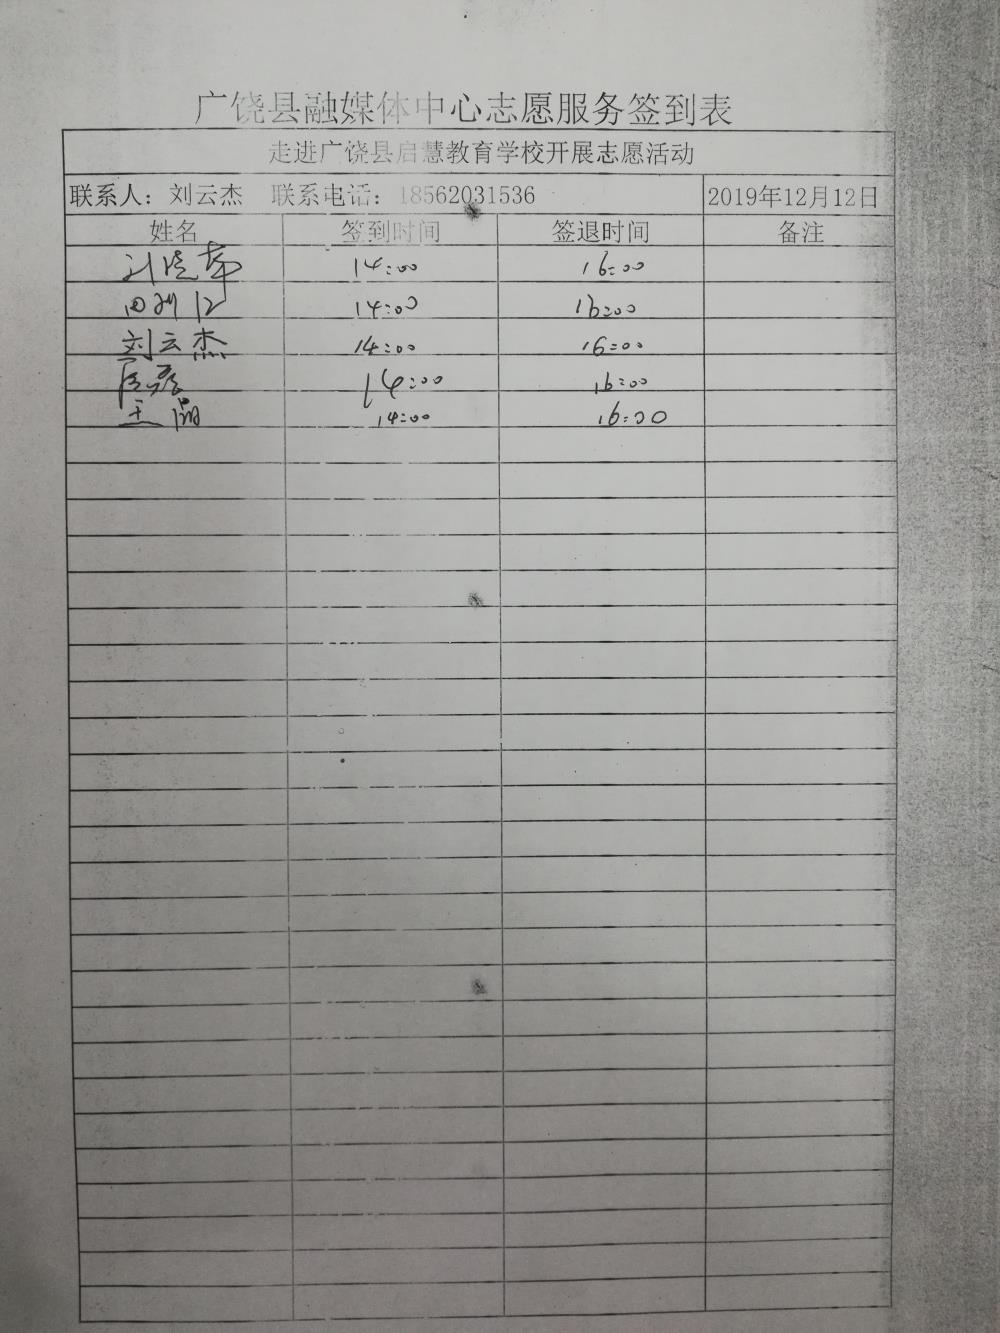 广饶县融媒体中心志愿服务签到表
走进广饶县启慧教育学校开展志愿活动
联系人：刘云杰 联系电话：18562031536 2019年12月12日
姓名 签到时间 签退时间 备注
刘 14:00 16:00
14:00 16:00
刘云杰 14:00 16:00
14:00 16:00
王 14:00 16:00